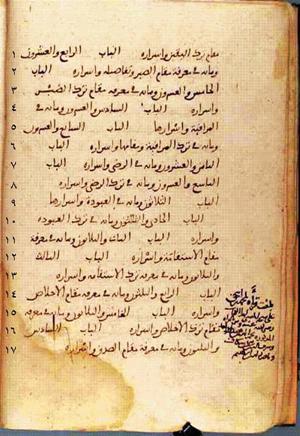 مقام ترك اليقين واسراره الباب الرابع والعشرون
ومائة في معرفة مقام الصبر وتفاصيله واسراره الباب
الخامس والعشرون ومائة في معرفة مقام ترك الصبر
واسراره الباب السادس والعشرون ومائة في
المراقبة واسرارها الباب السابع والعشرون
ومائة في ترك المراقبة ومقامها واسراره الباب
الثامن والعشرون ومائة في الرضى واسراره الباب
التاسع والعشرون ومائة في ترك الرضى واسراره
الباب الثلاثون ومائة في العبودة واسرارها
الباب الحادي والثلثون ومائة في ترك العبودة
واسراره الباب الثاني والثلاثون ومائة في معرفة
مقام الاستقامة واسراره الباب الثالث
والثلاثون ومائة في معرفة ترك الاستقامة واسراره
الباب الرابع والثلاثون ومائة في معرفة مقام الاخلاص
واسراره الباب الخامس والثلاثون ومائة في معرفة
مقام ترك الاخلاص واسراره الباب السادس
والثلثون ومائة في معرفة مقام الصدق واسراره
١
٢
٣
٤
٥
٦
٧
٨
٩
10
11
12
13
١٤
١٥
١٦
١٧